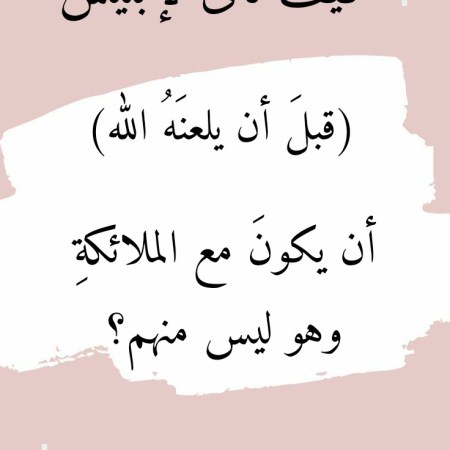 كيف لإبليس
(قبلَ أن يلعنَهُ الله)
أن يكونَ مع الملائكةِ
وهو ليس منهم؟